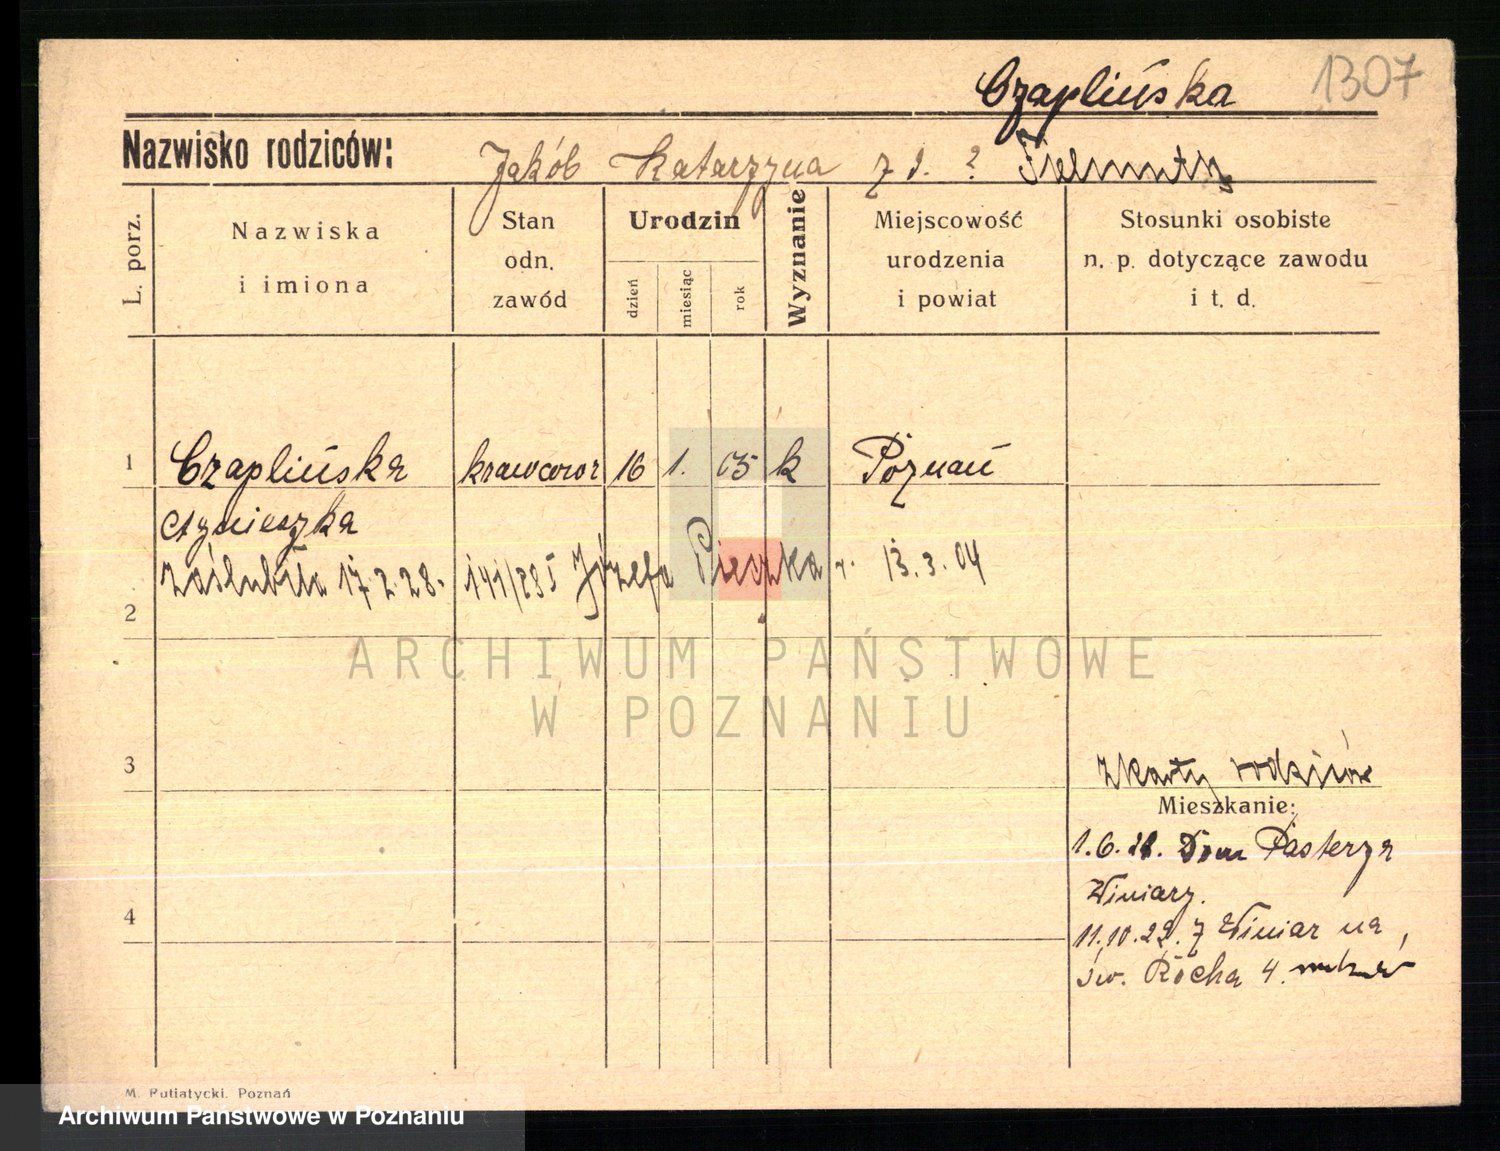 Czaplińska 1307
Nazwisko rodziców: Jakób Katarzyna z d. ?
L. porz.
Nazwiska
i imiona
Stan
odn.
zawód
Urodzin
dzień
miesiąc
rok
Wyznanie
Miejscowość
urodzenia
i powiat
Stosunki osobiste
n. p. dotyczące zawodu
i t. d.
1 Czaplińska krawcowa 16 1. 05 k Poznań
Agnieszka
zaślubiła 17.2.28. 141/285 Józefa Pieczka 13.3.04
2
ARCHIWUM PAŃSTWOWE
W POZNANIU
3
z karty rodziców
Mieszkanie:
1.6. Dom Pasterza
Winiary.
4
11.10.22. z Winiar na
św. Rocha 4.
M. Putiatycki. Poznań
Archiwum Państwowe w Poznaniu